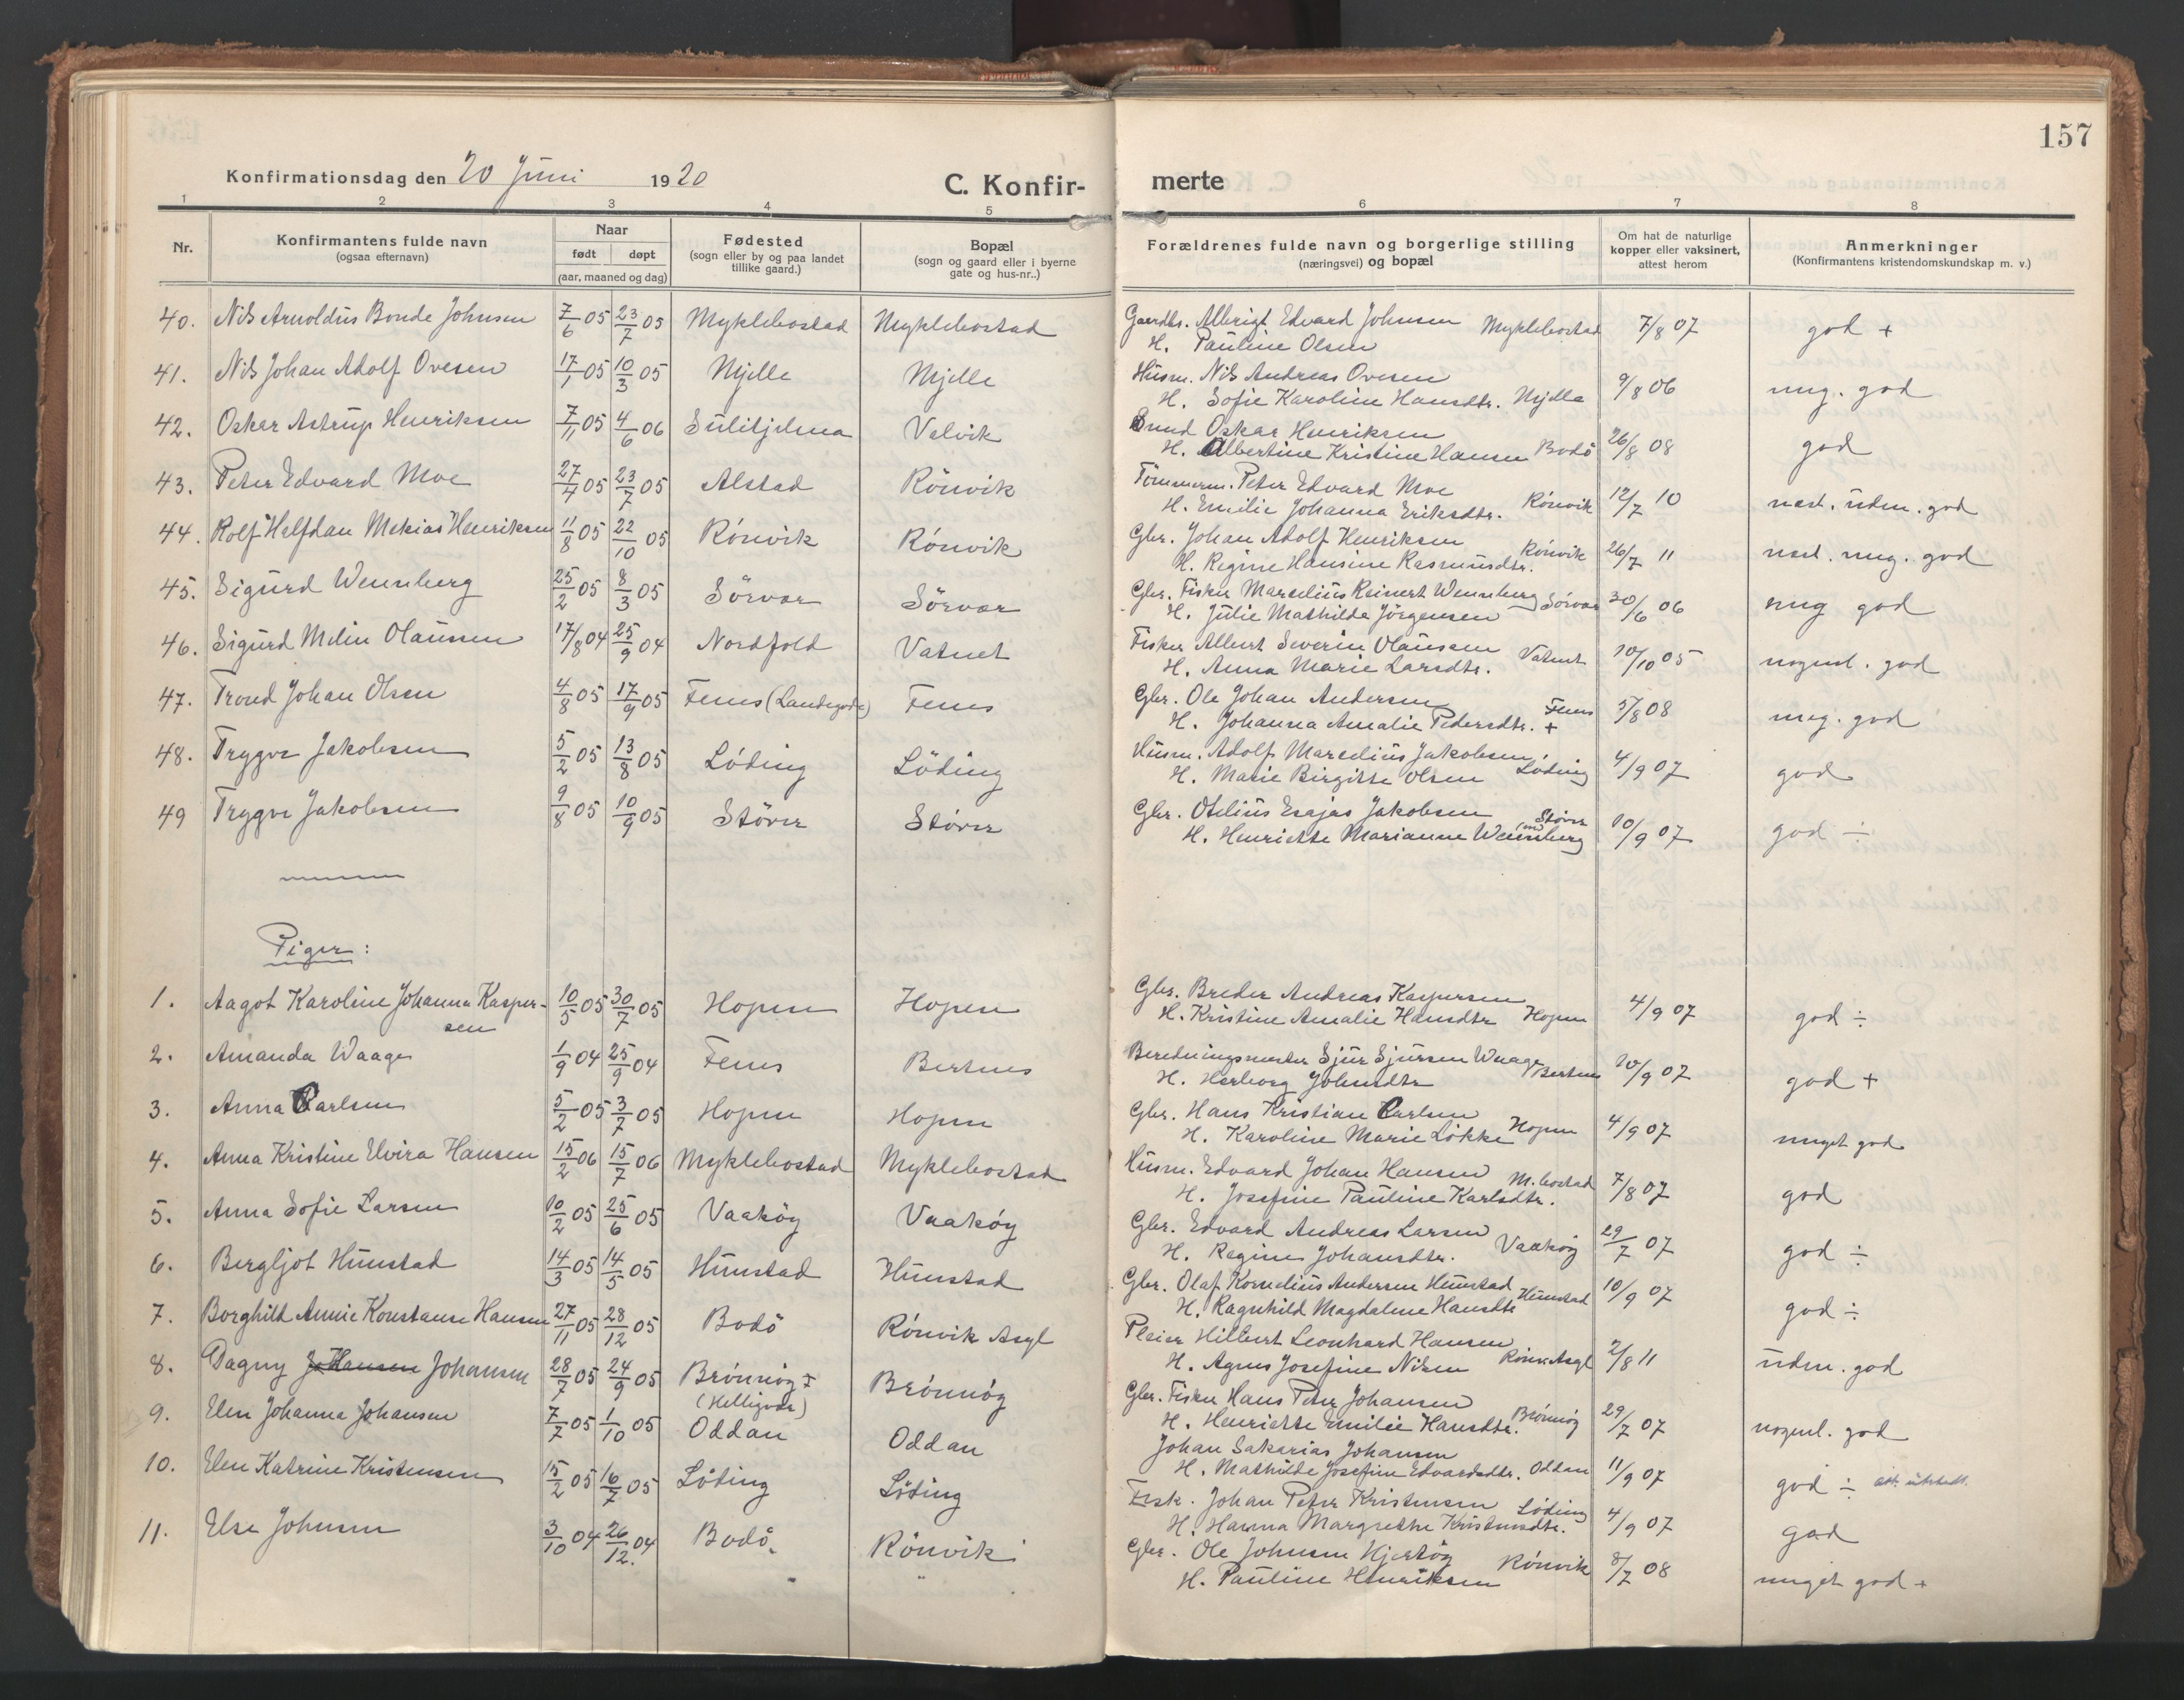 157
Konfirmationsdag den 20 Juni 1920
C. Konfir-
merte
1 2 3 4 5 6 7 8
Nr.
Konfirmantens fulde navn
(ogsaa efternavn)
Naar
født døpt
(aar, maaned og dag)
Fødested
(sogn eller by og paa landet
tillike gaard.)
Bopæl
(sogn og gaard eller i byerne
gate og hus-nr..)
Forældrenes fulde navn og borgerlige stilling
(næringsvei) og bopæl
Om hat de naturlige
kopper eller vaksinert,
attest herom
Anmerkninger
(Konfirmantens kristendomskundskap m. v.)
40. Nils Arnoldus Bonde Johnsen 7/6 05 23/7 05 Myklebostad Myklebostad Gaardbr. Albrigt Edvard Johnsen Myklebostad 7/8 07 god +
H. Pauline Olsen
41. Nils Johan Adolf Ovesen 17/1 05 10/3 05 Mjelle Mjelle Husm. Nils Andreas Ovesen 9/8 06 mg. god
H. Sofie Karoline Hansdtr. Mjelle
42. Oskar Astrup Henriksen 7/11 05 4/6 06 Sulitjelma Valvik Oskar Henriksen 26/8 08 god
H. Albertine Kristine Hansen Bodö
43. Peter Edvard Moe 27/4 05 23/7 05 Alstad Rönvik Tömmerm. Peter Edvard Moe 12/7 10 næst. üdm. god
H. Emilie Johanna Eriksdtr. Rönvik
44. Rolf Halfdan Mekias Henriksen 11/8 05 22/10 05 Rönvik Rönvik Gbr. Johan Adolf Henriksen Rönvik 26/7 11 næst. mg. god
H. Regine Hansine Rasmusdtr.
45. Sigurd Wennberg 25/2 05 8/3 05 Sörvær Sörvær Gbr. Fisker Marselius Reinert Wennberg Sörvær 30/6 06 mg god
H. Julie Mathilde Jörgensen
46. Sigurd Melin Olaussen 17/8 04 25/9 04 Nordfold Vatnet Fisker Albert Severin Olaussen Vatnet 10/10 05 nogenl. god
H. Anna Marie Larsdtr.
47. Trond Johan Olsen 4/8 05 17/9 05 Fenes (Landegode) Fenes Gbr. Ole Johan Andersen Fenes 5/8 08 meg. god
H. Johanna Amalie Pedersdtr. +
48. Trygve Jakobsen 5/2 05 13/8 05 Löding Löding Husm. Adolf Marselius Jakobsen 4/9 07 god
H. Marie Birgitte Olsen Löding
49 Trygve Jakobsen 9/8 05 10/9 05 Störer Störer Gbr. Otelius Esajas Jakobsen Störer 10/9 07 god ÷
H. Henriette Marianne Wennberg
Piger:
1. Aagot Karoline Johanna Kasper- 10/5 05 30/7 05 Hopen Hopen Gbr. Breder Andreas Kaspersen 4/9 07 god ÷
sen H. Kristine Amalie Hansdtr Hopen
2. Amanda Waage 1/9 04 25/9 04 Fenes Bertnes Beredningsmester Sjur Sjursen Waage Bertnes 10/9 07 god +
H. Herborg Johnsdtr
3. Anna Carlsen 5/2 05 3/7 05 Hopen Hopen Gbr. Hans Kristian Carlsen Hopen 4/9 07 meget god
H. Karoline Marie Lökke
4. Anna Kristine Elvira Hansen 15/2 06 15/7 06 Myklebostad Myklebostad Husm. Edvard Johan Hansen M.bostad 7/8 07 god
H. Josefine Pauline Karlsdtr.
5. Anna Sofie Larsen 10/2 05 25/6 05 Vaaköy Vaaköy Gbr. Edvard Andreas Larsen Vaaköy 29/7 07 god ÷
H. Regine Johansdtr.
6. Bergljot Hunstad 14/3 05 14/5 05 Hunstad Hunstad Gbr. Olaf Kornelius Andersen Hunstad Hunstad 10/9 07 god ÷
H. Ragnhild Magdalene Hansdtr
7. Borghild Annie Konstanse Hansen 27/11 05 28/12 05 Bodö Rönvik Asyl Pleier Hilbert Leonhard Hansen 2/8 11 üdm. god
H. Agnes Josefine Nilsen Rönv. Asyl
8. Dagny Johansen 28/7 05 24/9 05 Brönnöy Brönnöy Gbr. Fisker Hans Peter Johansen 29/7 07 nogenl. god
(Helligvær) H. Henriette Emilie Hansdtr. Brönnöy
9. Elen Johanna Johansen 7/7 05 1/10 05 Oddan Oddan Johan Sakarias Johansen 11/9 07 god ÷ att. utstedt.
H. Mathilde Josefine Edvardsdtr. Oddan
10. Elen Katrine Kristensen 15/2 05 16/7 05 Löding Löding Fisk. Johan Peter Kristensen Löding 4/9 07 god
H. Hanna Margrethe Kristensdtr.
11. Else Johnsen 3/10 04 26/12. 04 Bodö Rönvik Gbr. Ole Johnsen Hjertöy Rönvik 8/7 08 meget god +
H. Pauline Henriksen